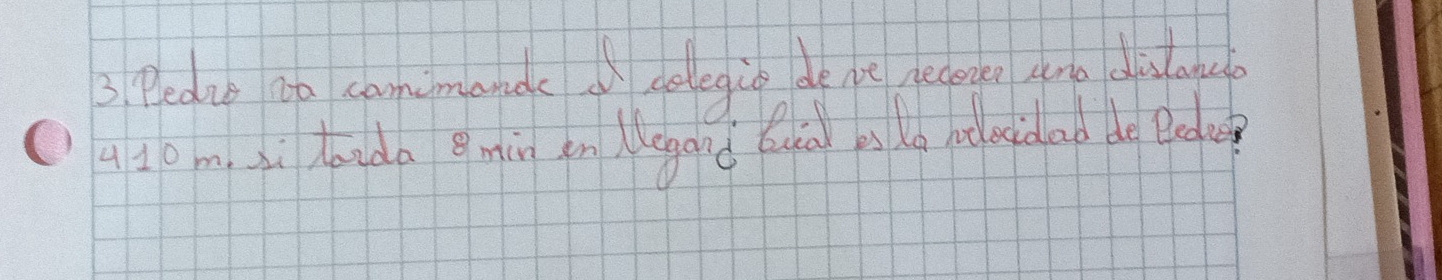 3. Pedro va camimando al colegio de ve recorer una distancia
410 m. si tarda 8 min en llegar ¿ Cuál es la velocidad de Pedro?